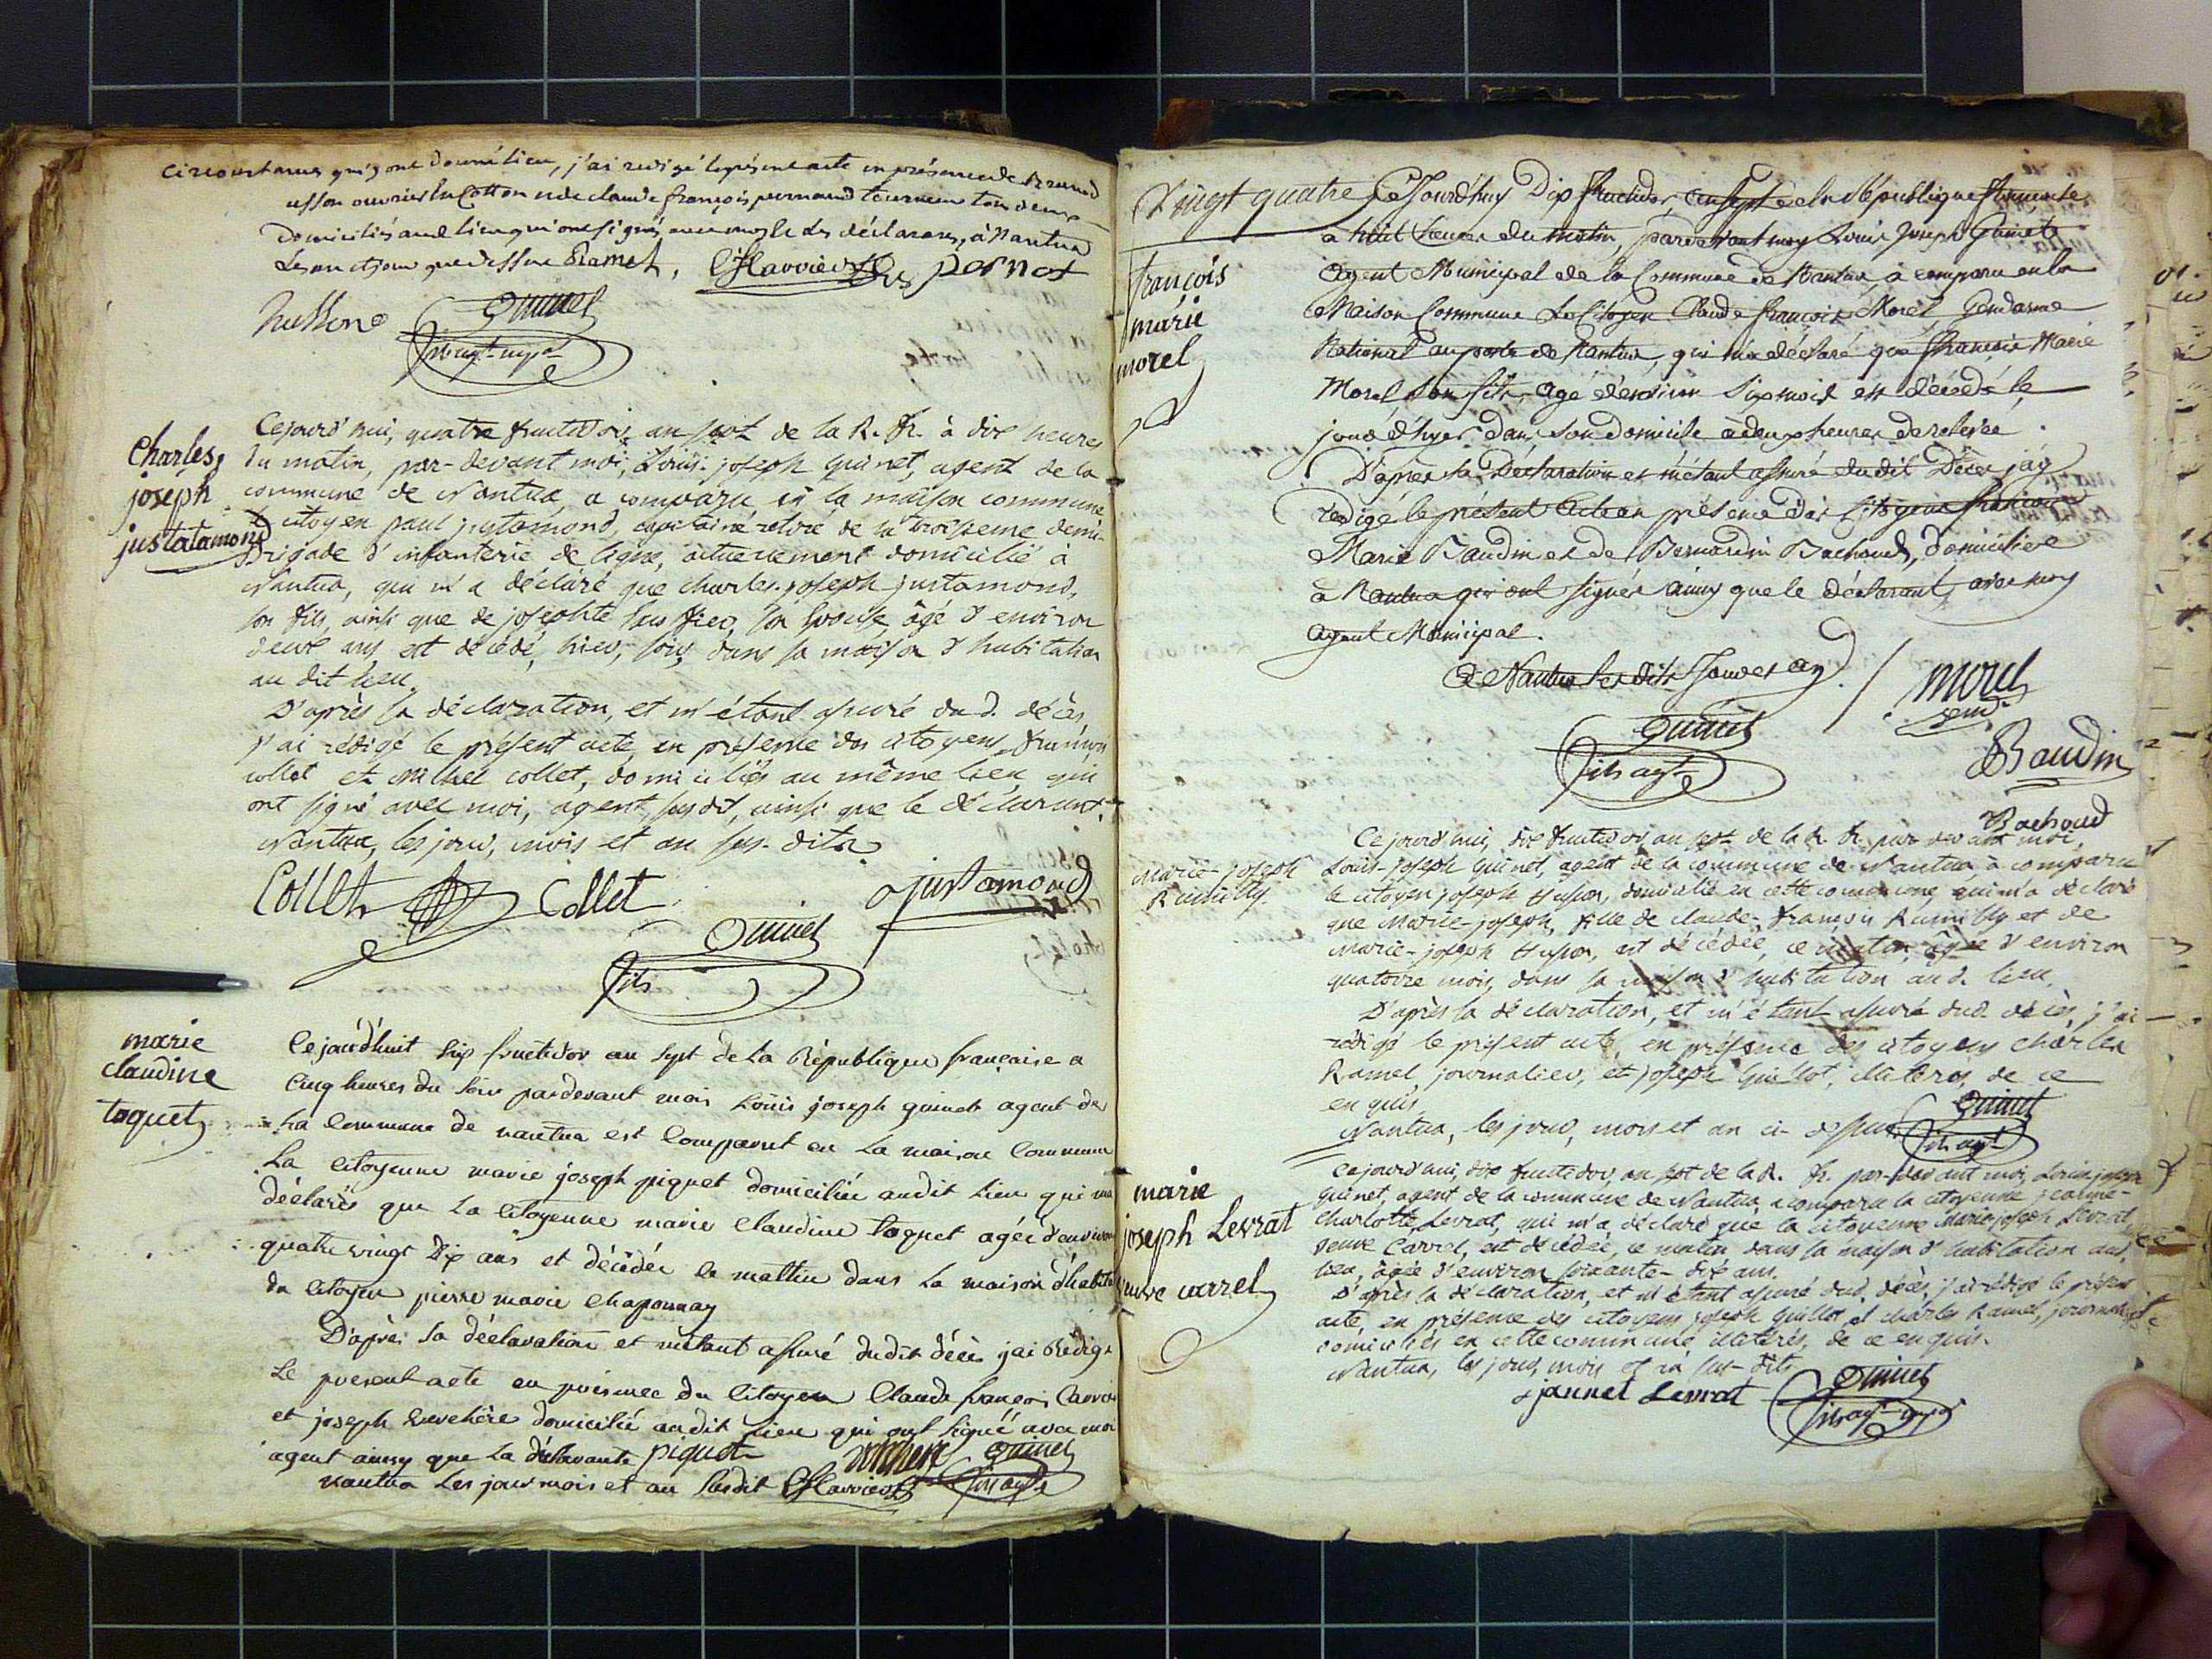 circonstances qui y ont donné lieu, j'ai redigé le présent acte en présence de
usson ouvrier en Cotton et de claude françois pernaud tourneur tou deux
domiciliés aud lieu qui ont signés avec moy le déclarans, à Nantua
Les an et jour que dessus Ramel, pernot
hussone Quinet
charles
joseph
justatamond
Cejourd'hui, quatre fructidor, an sept de la R. fr. à dix heures
du matin, par-devant moi, Louis-joseph quinet, agent de la
commune de Nantua, a comparu en la maison commune
le citoyen paul justamond, capitaine retiré de la troisieme demi-
brigade d'infanterie de ligne, actuellement domicilié à
Nantua, qui m'a déclaré que charles-joseph justamond,
son fils, ainsi que de josephte son épouse, âgé d'environ
deux ans, est décédé, hier, soir, dans sa maison d'habitation
au dit lieu.
D'après sa déclaration, et m'étant assuré dud. décès,
j'ai rédigé le présent acte, en présence des citoyens françois
collet et michel collet, domiciliés au même lieu, qui
ont signé avec moi, agent, susdit, ainsi que le déclarant.
Nantua, les jour, mois et an sus-dits
Collet Collet justamond
Quinet
fils
marie
claudine
toquet
Cejourdhuit six fructidor an sept de la République française a
cinq heures du soir pardevant moi Loüis joseph quinet agent de
La Commune de nantua est Comparut en La maison Commune
La Citoyenne marie joseph piquet domiciliée audit Lieu qui ma
déclarés que La Citoyenne marie Claudine toquet agée d'environ
quatre vingt dix ans et décédée ce mattin dans La maison d'habita
du Citoyen pierre marie Chaponnay
D'après sa déclaration et m'étant assuré dudit décès jai Rédigé
Le present acte en présence du Citoyen Claude françois
et joseph domicilié audit Lieu qui ont signé avec moi
agent ainsy que La déclarante piquet Quinet
nantua Les jour mois et an susdit fils agt
Vingt quatre Cejourd'huy Dix fructidor, an sept de la République françoise
à huit heures du matin, pardevant moy Louis Joseph Quinet
françois
marie
morel
Agent Municipal de la Commune de Nantua, a comparu en la
Maison Commune Le Citoyen Claude françois Morel Gendarme
National au poste de Nantua, qui m'a déclaré que françois Marie
Morel son fils, agé d'environ six mois est décédé le
jour d'hyer dans son domicile à deux heures de relevée.
D'après sa Déclaration et m'étant assuré du dit Décès jay
redigé le présent acte en présence des Citoyens françois
Marie Baudin et de Bernardin Bachoud, domiciliés
à Nantua qui ont signés ainsy que le déclarant, avec moy
agent Municipal.
A Nantua les dits Jour et an
morel
Quinet
fils agt
Baudin
Bachoud
Marie-joseph
Rumilly.
Ce jourd'hui, dix fructidor, an sept de la R. fr. par-devant moi,
Louis-joseph quinet, agent de la commune de Nantua, a comparu
le citoyen joseph husson, domicilié en cette commune, qui m'a déclaré
que Marie-joseph, fille de claude-françois Rumilly et de
marie-joseph husson, est décédée, ce matin, âgée d'environ
quatorze mois, dans sa maison d'habitation aud. lieu.
D'après sa déclaration, et m'étant assuré dud. décès, j'ai
rédigé le présent acte, en présence des citoyens charles
Ramel, journalier, et joseph guillot, illiterés, de ce
enquis
Nantua, les jour, mois et an ci-dessus. Quinet
fils agt
marie
joseph Levrat
veuve carrel
Cejourd'hui, dix fructidor, an sept de la R. fr. par-devant moi, Louis joseph
quinet, agent de la commune de Nantua, a comparu la citoyenne jeanne-
charlotte Levrat, qui m'a déclaré que la citoyenne Marie-joseph Levrat,
veuve Carrel, est décédée, ce matin dans la maison d'habitation aud.
lieu, âgée d'environ soixante-dix ans.
D'après sa déclaration, et m'étant assuré dud. décès, j'ai rédigé le présent
acte, en présence des citoyens joseph guillot et charles Ramel, journaliers,
domiciliés en cette commune, illiterés, de ce enquis.
Nantua, les jour, mois et an sus-dits
jannet Levrat Quinet
fils agt